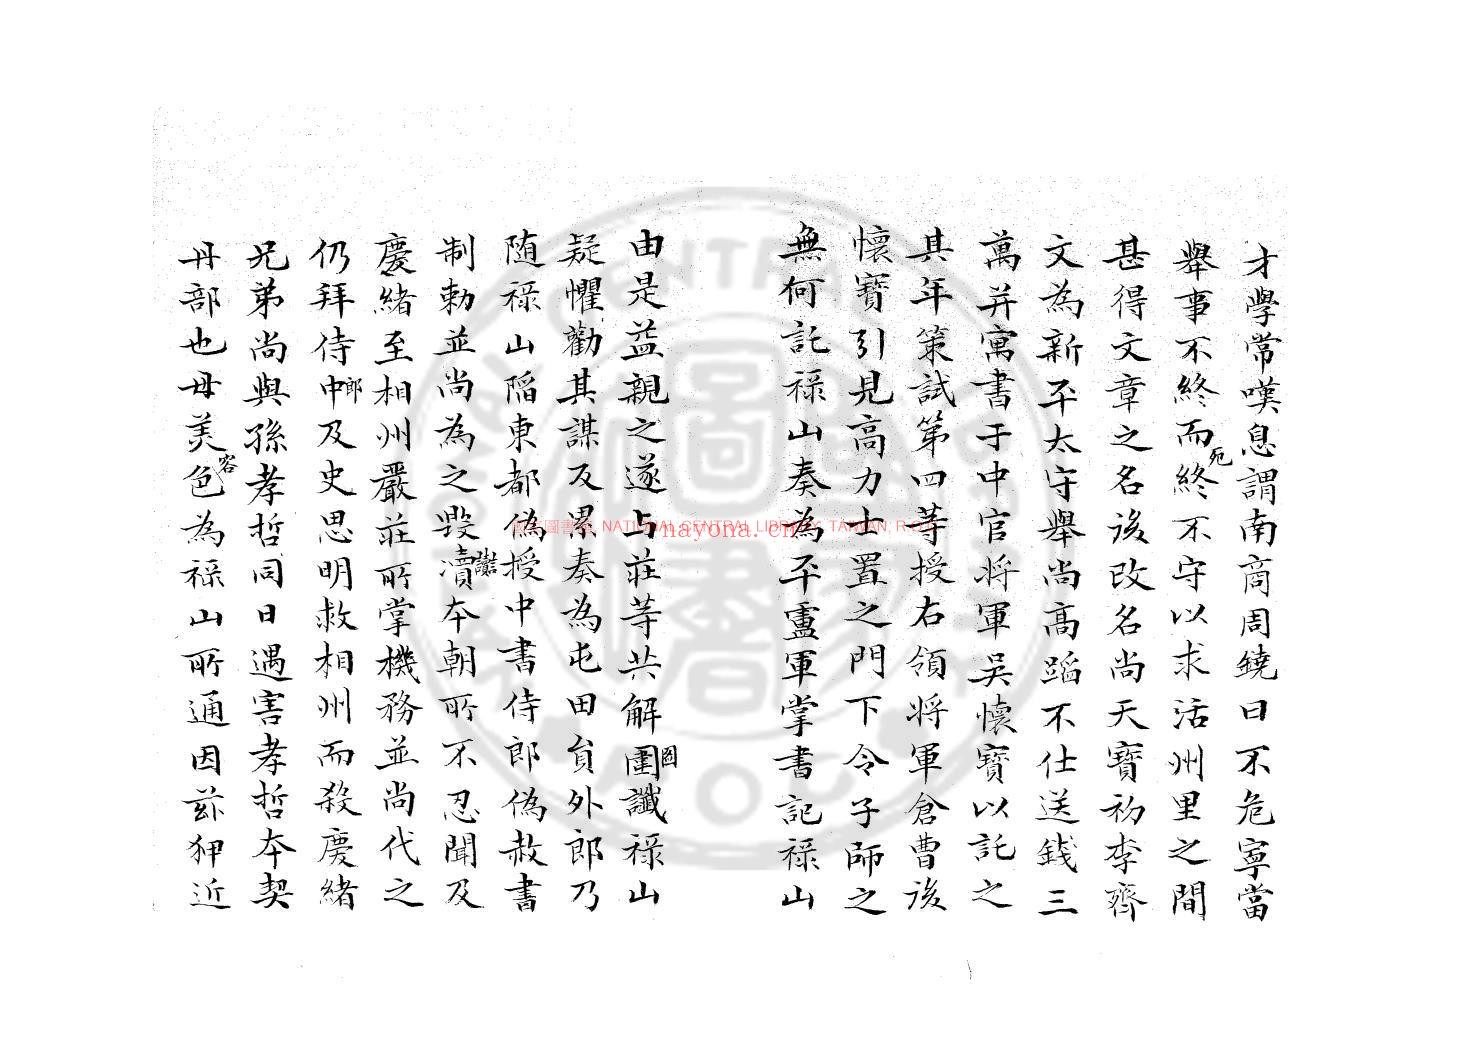 才學常嘆息謂南商周鐃曰不危寧當
舉事不終而終不守以求活州里之間
死
甚得文章之名後改名尚天寶初李齊
文為新平太守舉尚高蹈不仕送錢三
萬并寓書于中官将軍吳懷寶以託之
其年策試第四等授右領将軍倉曹後
懷寶引見高力士置之門下令子師之
無何託祿山奏為平盧軍掌書記祿山
由是益親之遂与莊等共解圕讖祿山
圖
疑懼勸其謀反累奏為屯田貟外郎乃
随祿山陷東都偽授中書侍郎偽赦書
制勅並尚為之毀瀆本朝所不忍聞及
讟
慶緒至相州嚴莊所掌機務並尚代之
仍拜侍中及史思明救相州而殺慶緒
郎
兄弟尚與孫孝哲同日遇害孝哲本契
丹部也母美色為祿山所通因玆狎近
容
NATIONAL CENTRAL LIBRARY, TAIWAN, R.O.C
nayona.cn